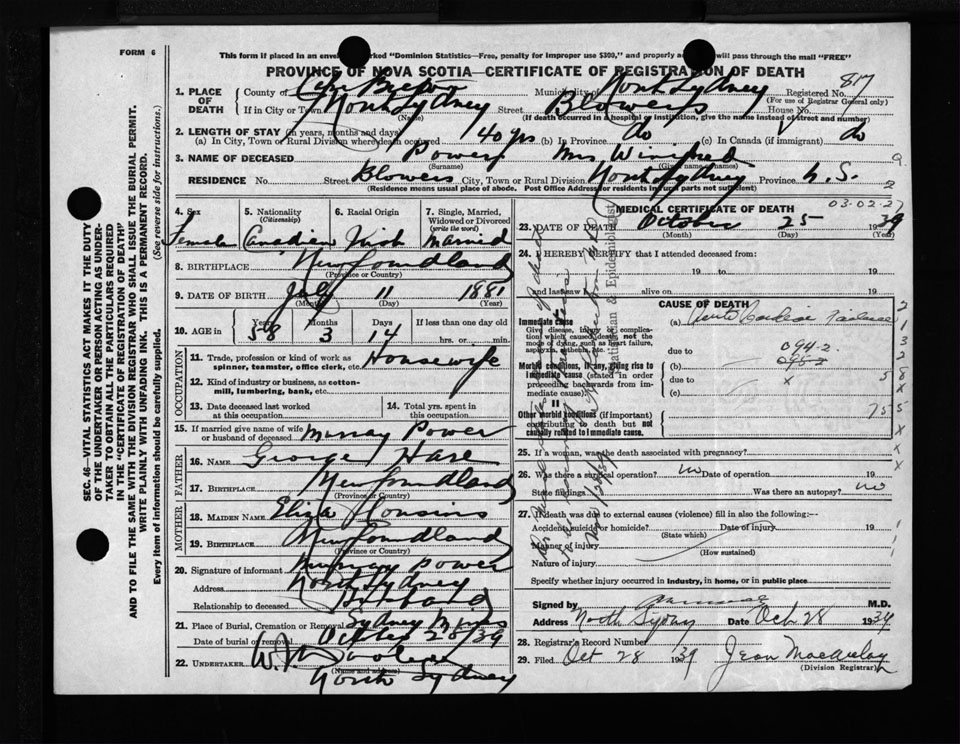 FORM 6
This form if placed in an marked "Dominion Statistics—Free, penalty for improper use $300," and properly will pass through the mail "FREE"
PROVINCE OF NOVA SCOTIA—CERTIFICATE OF REGISTRATION OF DEATH
817
1. PLACE OF DEATH
County of Cape Breton Municipality of North Sydney Registered No.
(For use of Registrar General only)
If in City or Town North Sydney Street Blowers House No.
(Name) (If death occurred in a hospital or institution, give the name instead of street and number)
2. LENGTH OF STAY (in years, months and days)
(a) In City, Town or Rural Division where death occurred 40 yrs (b) In Province do (c) In Canada (if immigrant) do
3. NAME OF DECEASED Power, Mrs. Winifred
(Surname) (Given names)
RESIDENCE No. Street Blowers City, Town or Rural Division North Sydney Province N.S.
(Residence means usual place of abode. Post Office Address for residents in rural parts not sufficient)
4. Sex Female
5. Nationality (Citizenship) Canadian
6. Racial Origin Irish
7. Single, Married, Widowed or Divorced (write the word) Married
8. BIRTHPLACE Newfoundland
(Province or Country)
9. DATE OF BIRTH July 11 1881
(Month) (Day) (Year)
10. AGE in Years 58 Months 3 Days 14 If less than one day old
hrs. or min.
OCCUPATION
11. Trade, profession or kind of work as spinner, teamster, office clerk, etc. Housewife
12. Kind of industry or business, as cotton-mill, lumbering, bank, etc.
13. Date deceased last worked at this occupation
14. Total yrs. spent in this occupation
15. If married give name of wife or husband of deceased Murray Power
FATHER
16. NAME George Hare
17. BIRTHPLACE Newfoundland
(Province or Country)
MOTHER
18. MAIDEN NAME Eliza
19. BIRTHPLACE Newfoundland
(Province or Country)
20. Signature of informant Murray Power
Address North Sydney
Relationship to deceased Husband
21. Place of Burial, Cremation or Removal Sydney Mines
Date of burial or removal October 28/39
22. UNDERTAKER W.
(Name and address)
North Sydney
MEDICAL CERTIFICATE OF DEATH
03-02-27
23. DATE OF DEATH October 25 1939
(Month) (Day) (Year)
24. I HEREBY CERTIFY that I attended deceased from:
19 to 19
and last saw h alive on 19
CAUSE OF DEATH
Immediate cause
Give disease, injury or complication which caused death, not the mode of dying, such as heart failure, asphyxia, asthenia, etc.
(a) Acute Cardiac Failure
due to 094-2
095-2
Morbid conditions, if any, giving rise to immediate cause (stated in order proceeding backwards from immediate cause).
due to x
(c)
II
Other morbid conditions (if important) contributing to death but not causally related to immediate cause.
25. If a woman, was the death associated with pregnancy?
26. Was there a surgical operation? no Date of operation 19
State findings Was there an autopsy? no
27. If death was due to external causes (violence) fill in also the following:—
Accident, suicide or homicide? Date of injury 19
(State which)
Manner of injury
(How sustained)
Nature of injury
Specify whether injury occurred in industry, in home, or in public place
Signed by M.D.
Address North Sydney Date Oct 28 1939
28. Registrar's Record Number
29. Filed Oct 28 1939 Jean
(Division Registrar)
Statistician & Epidemiologist
SEC. 46—VITAL STATISTICS ACT MAKES IT THE DUTY
OF THE UNDERTAKER OR PERSON ACTING AS UNDER-
TAKER TO OBTAIN ALL THE PARTICULARS REQUIRED
IN THE "CERTIFICATE OF REGISTRATION OF DEATH"
AND TO FILE THE SAME WITH THE DIVISION REGISTRAR WHO SHALL ISSUE THE BURIAL PERMIT.
WRITE PLAINLY WITH UNFADING INK. THIS IS A PERMANENT RECORD.
Every item of information should be carefully supplied. (See reverse side for instructions.)